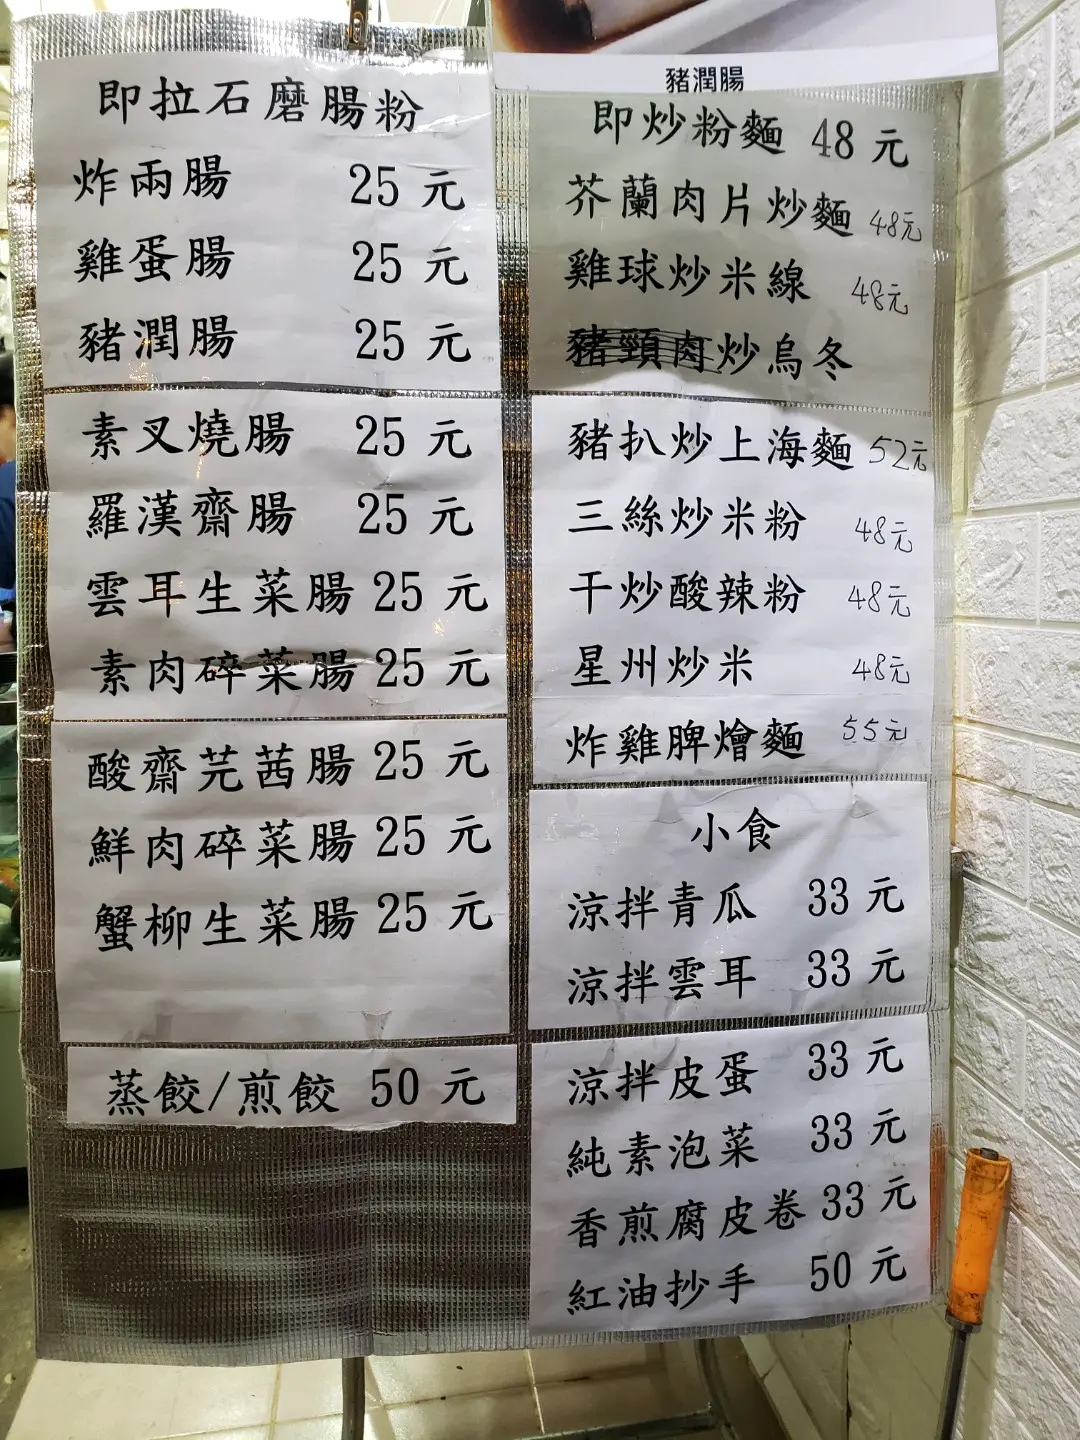 豬潤腸
即拉石磨腸粉
炸兩腸 25 元
雞蛋腸 25 元
豬潤腸 25 元
素叉燒腸 25 元
羅漢齋腸 25 元
雲耳生菜腸 25 元
素肉碎菜腸 25 元
酸齋芫茜腸 25 元
鮮肉碎菜腸 25 元
蟹柳生菜腸 25 元
蒸餃/煎餃 50 元
即炒粉麵 48 元
芥蘭肉片炒麵 48元
雞球炒米線 48元
豬頸肉炒烏冬
豬扒炒上海麵 52元
三絲炒米粉 48元
干炒酸辣粉 48元
星州炒米 48元
炸雞脾燴麵 55元
小食
涼拌青瓜 33 元
涼拌雲耳 33 元
涼拌皮蛋 33 元
純素泡菜 33 元
香煎腐皮卷 33 元
紅油抄手 50 元